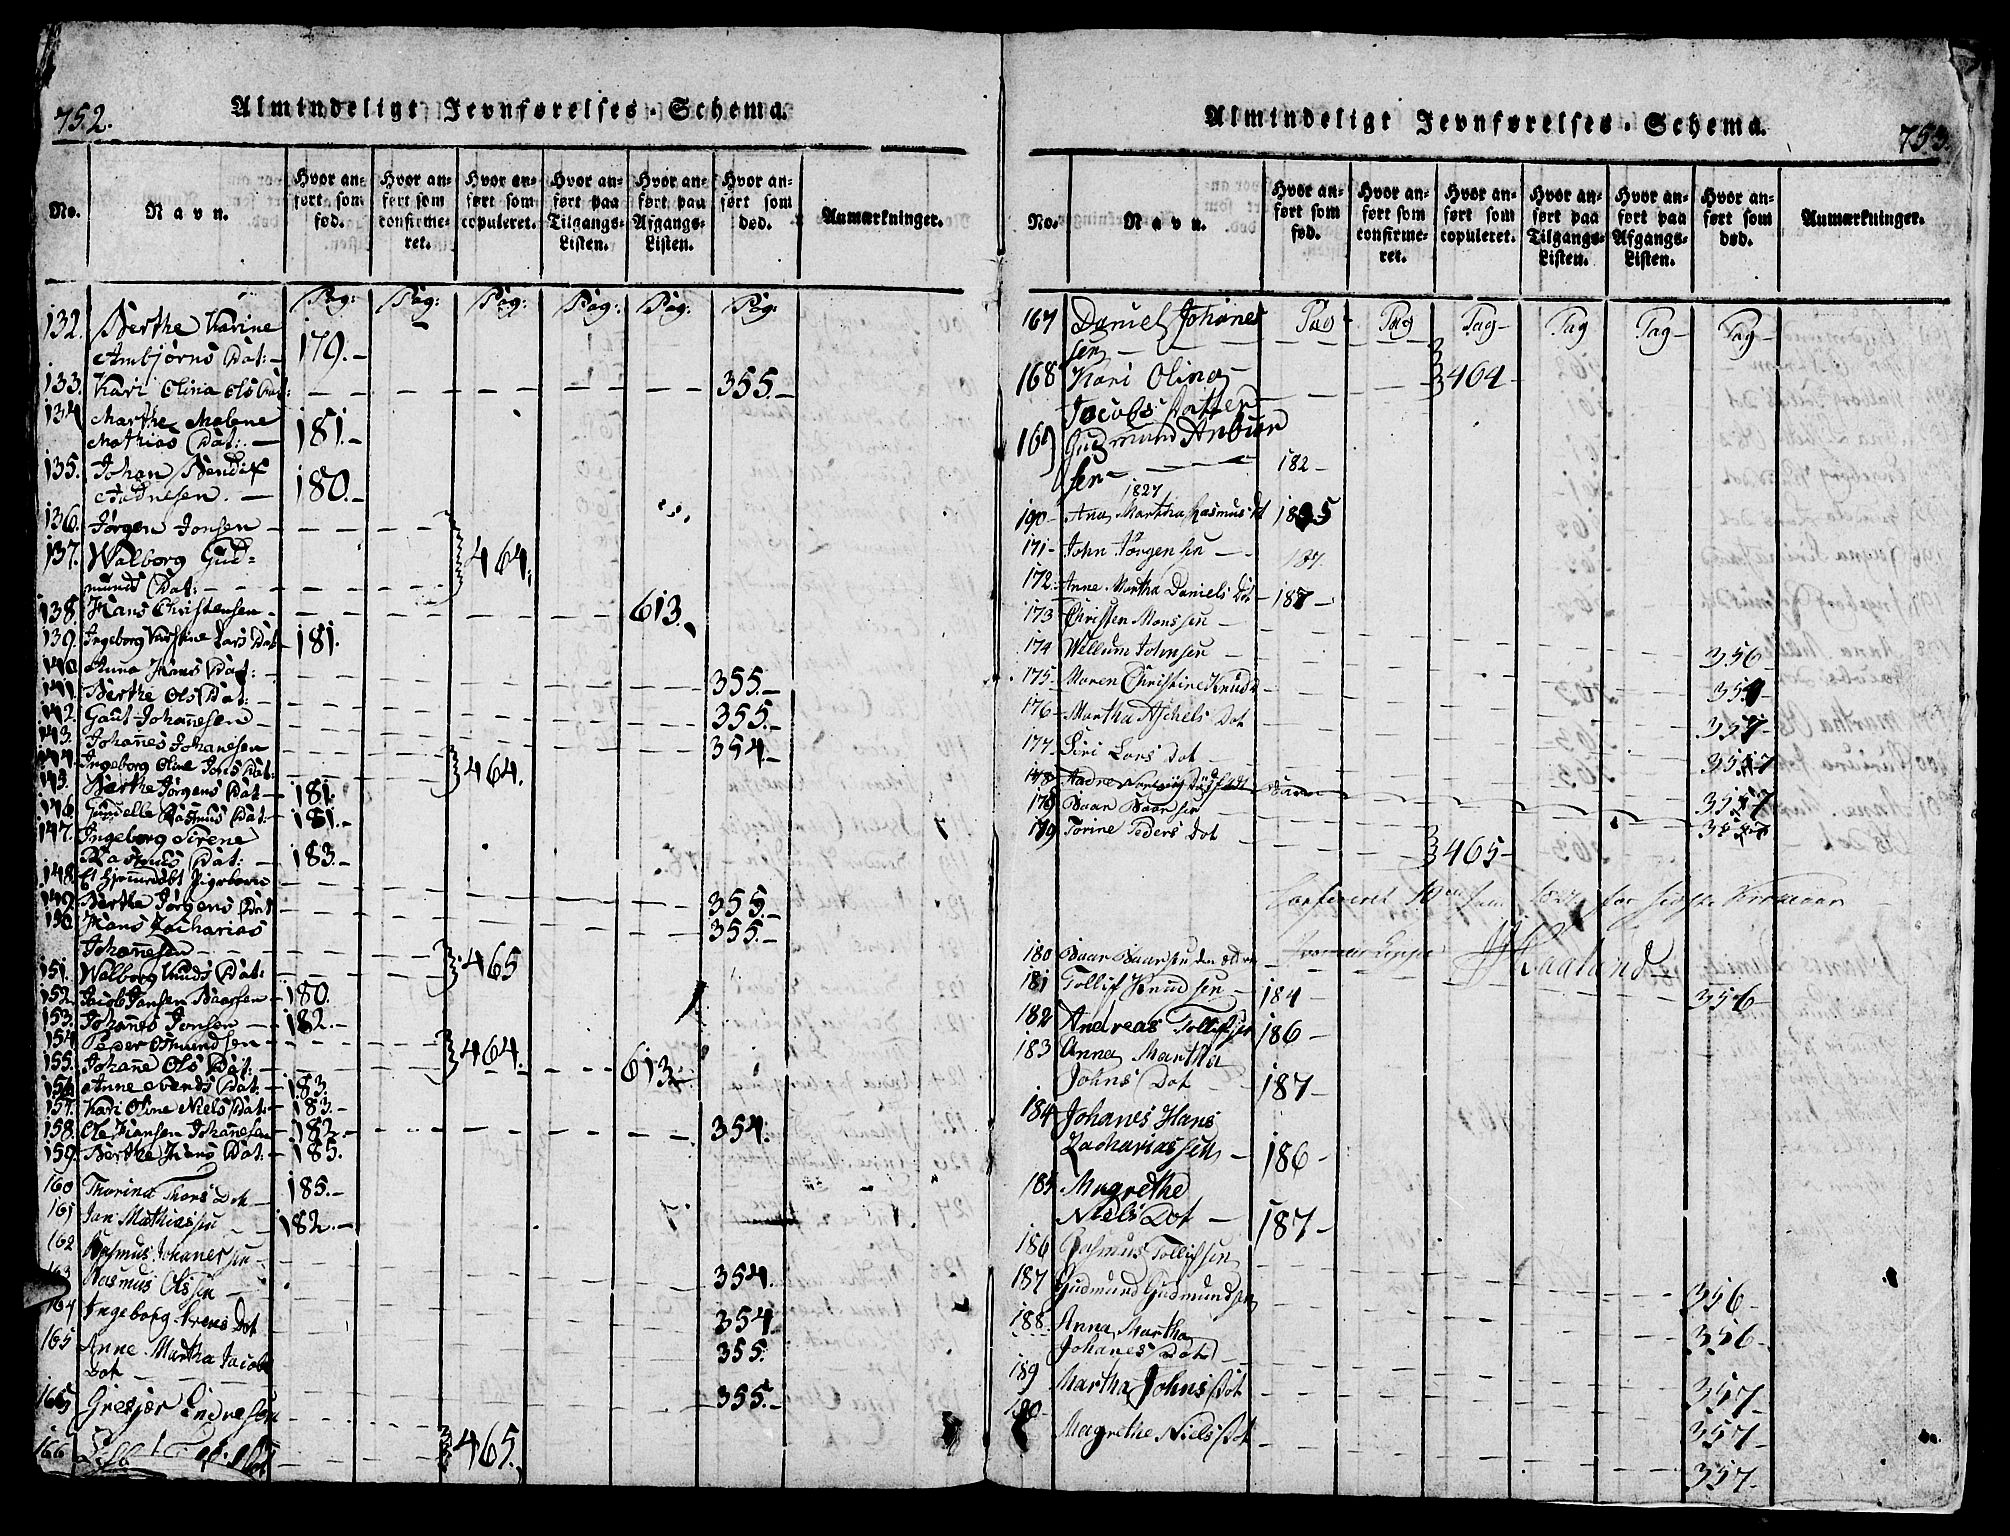 752.
Almindeligt Jevnførelses-Schema.
No.
Navn.
Hvor anført som fød.
Hvor anført som confirmeret.
Hvor anført som copuleret.
Hvor anført paa Tilgangs-Listen.
Hvor anført paa Afgangs-Listen.
Hvor anført som død.
Anmærkninger.
Pag: Pag: Pag: Pag: Pag: Pag:
132. Berthe Karine
Ambjørns Dat: — 179. —
133. Kari Olina Ols Dat: 355. —
134 Marthe Malene
Mathias Dat: — 181. —
135. Johan Bendix
Andresen. — 180. —
136. Jørgen Jonsen —
137. Walborg Gud= 464.
munds Dat: —
138. Hans Christensen — 613. —
139. Ingeborg Kirstine Lars Dat 181.
140. Anna Hans Dat: — 355. —
141. Berthe Ols Dat: — 355. —
142. Gaut Johannesen — 354. —
143. Johannes Johannesen
144. Ingeborg Oline Jons Dat: 464.
145. Berthe Jørgens Dat — 181.
146. Gunnelle Rasmus Dat: — 181. —
147. Ingeborg Sirene
Rasmus Dat: — 183. —
148. Et hjemmedøbt Pigebarn 355.
149. Berthe Jørgens Dat 355. —
150. Hans Zacharias
Johannesen — 465
151. Walborg Knuds Dat:
152. Jacob Jansen Baagsen — 180.
153. Johannes Jonsen — 182. —
154. Peder Osmundsen — 464.
155. Johanne Ols Dat: — 613. —
156. Anne Evends Dat: 183.
157. Kari Oline Niels Dat: — 183. —
158. Ole Hansen Johannesen 182. — 354.
159. Berthe Hans Dat: — 185.
160 Thorina Thors Dot — 185. —
161 Jan Mathiassen — 182. —
162 Rasmus Johannessen — 354.
163 Rasmus Olssen — 354
164 Ingeborg Dot 355.
165 Anne Martha Jacobs
Dot — 355. —
165 Gresjer Endresen 465.
166
753.
Almindeligt Jevnførelses-Schema.
No.
Navn.
Hvor anført som fød.
Hvor anført som confirmeret.
Hvor anført som copuleret.
Hvor anført paa Tilgangs-Listen.
Hvor anført paa Afgangs-Listen.
Hvor anført som død.
Anmærkninger.
167 Daniel Johanes Pag — Pag Pag — Pag Pag — Pag —
sen —
168 Kari Olina — 464 —
Jacobs Datter —
169 Gudmund Anbiørn
sen — 182 —
1827
190 — Ana Martha Rasmus Dt 1835
171 — John Jørgensen — 187.
172. Anne Martha Daniels Dot — 187 —
173 Christen Monssen —
174 Willum Johnsen — 356 —
175 — Maren Christine Knuds 357 —
176 — Martha Aschels Dot 357 —
177 — Siri Lars Dot — 3557
178
179 Baar Baarsen 357
179 Torine Peders Dot 465 —
Confereret 10
180 Baar Baarsen den ældre — Haaland
181 Tollif Knudsen — 184 — 356 —
182 Andreas Tollifsen 186 —
183 Anna Martha
Johns Dot — 187 —
184 Johanes Hans
Zachariassen — 186 —
185 Magrethe
Niels Dot — 187 —
186 Rasmus Tollifsen
187 Gudmund Gudmundsen 356 —
188 Anna Martha
Johanes Dot — 356 —
189 Martha Johns Dot 357 —
190 357 —
Magrethe Niels Dot — 357 —